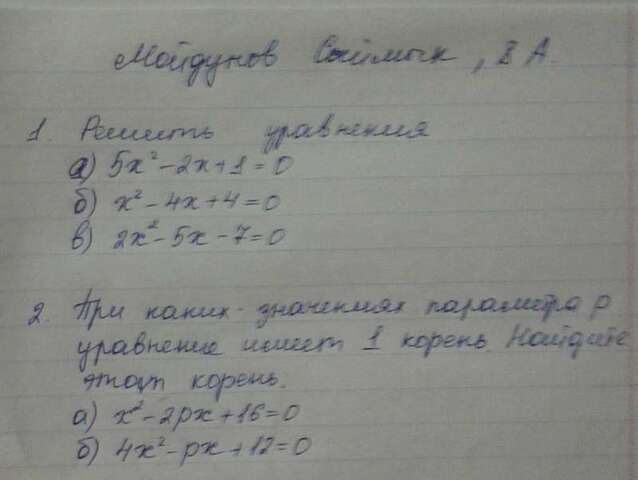 Мойдунов Сыймык, 8 А.
1. Решить уравнения
а) 5x² - 2x + 1 = 0
б) x² - 4x + 4 = 0
в) 2x² - 5x - 7 = 0
2. При каких значениях параметра p
уравнение имеет 1 корень. Найдите
этот корень.
а) x² - 2px + 16 = 0
б) 4x² - px + 12 = 0